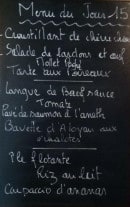 Menu du Jour 15
Croustillant de chèvre
Salade de lardons et œuf
Mollet
Tarte aux Poireaux
Langue de Bœuf sauce
Tomate
Pavé de saumon à l'aneth
Bavette d'Aloyau aux
échalotes
Île flottante
Riz au lait
Carpaccio d'ananas